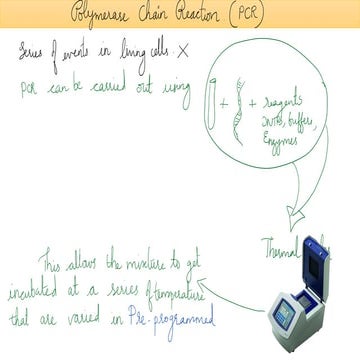 Polymerase Chain Reaction (PCR)
Series of events in living cells. X
PCR can be carried out using
+ + reagents
buffers,
Enzymes
Thermal
This allows the mixture to get
incubated at a series of temperature
that are varied in Pre-programmed